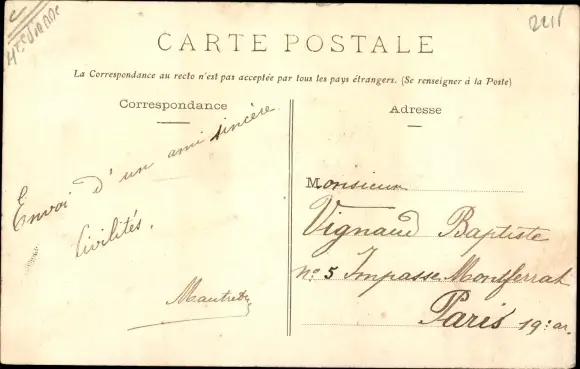 Hte Vienne
2211
CARTE POSTALE
La Correspondance au recto n'est pas acceptée par tous les pays étrangers. (Se renseigner à la Poste)
Correspondance
Envoi d'un ami sincère
Civilités.
Adresse
Monsieur
Vignaud Baptiste
n° 5 Impasse Montferrat
Paris 19: ar.